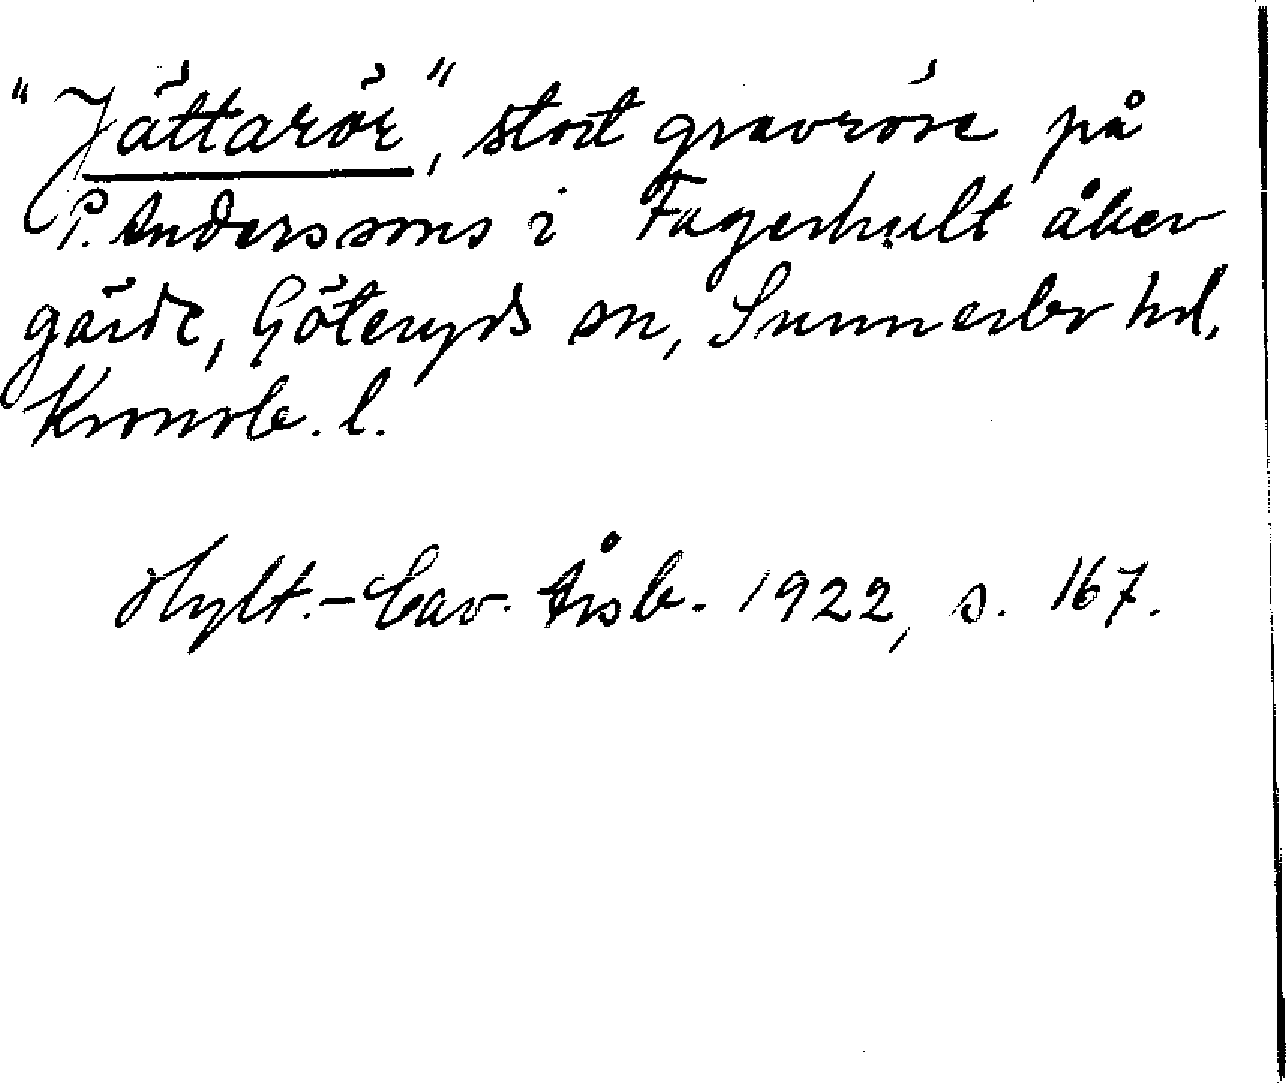 "Jättarör", stort gravröse på
P. Anderssons i Fagerhult åker
gärde, Göteryds sn, Sunnerbo hd,
Kronob. l.
Hylt.-Cav. Årsb. 1922, s. 167.